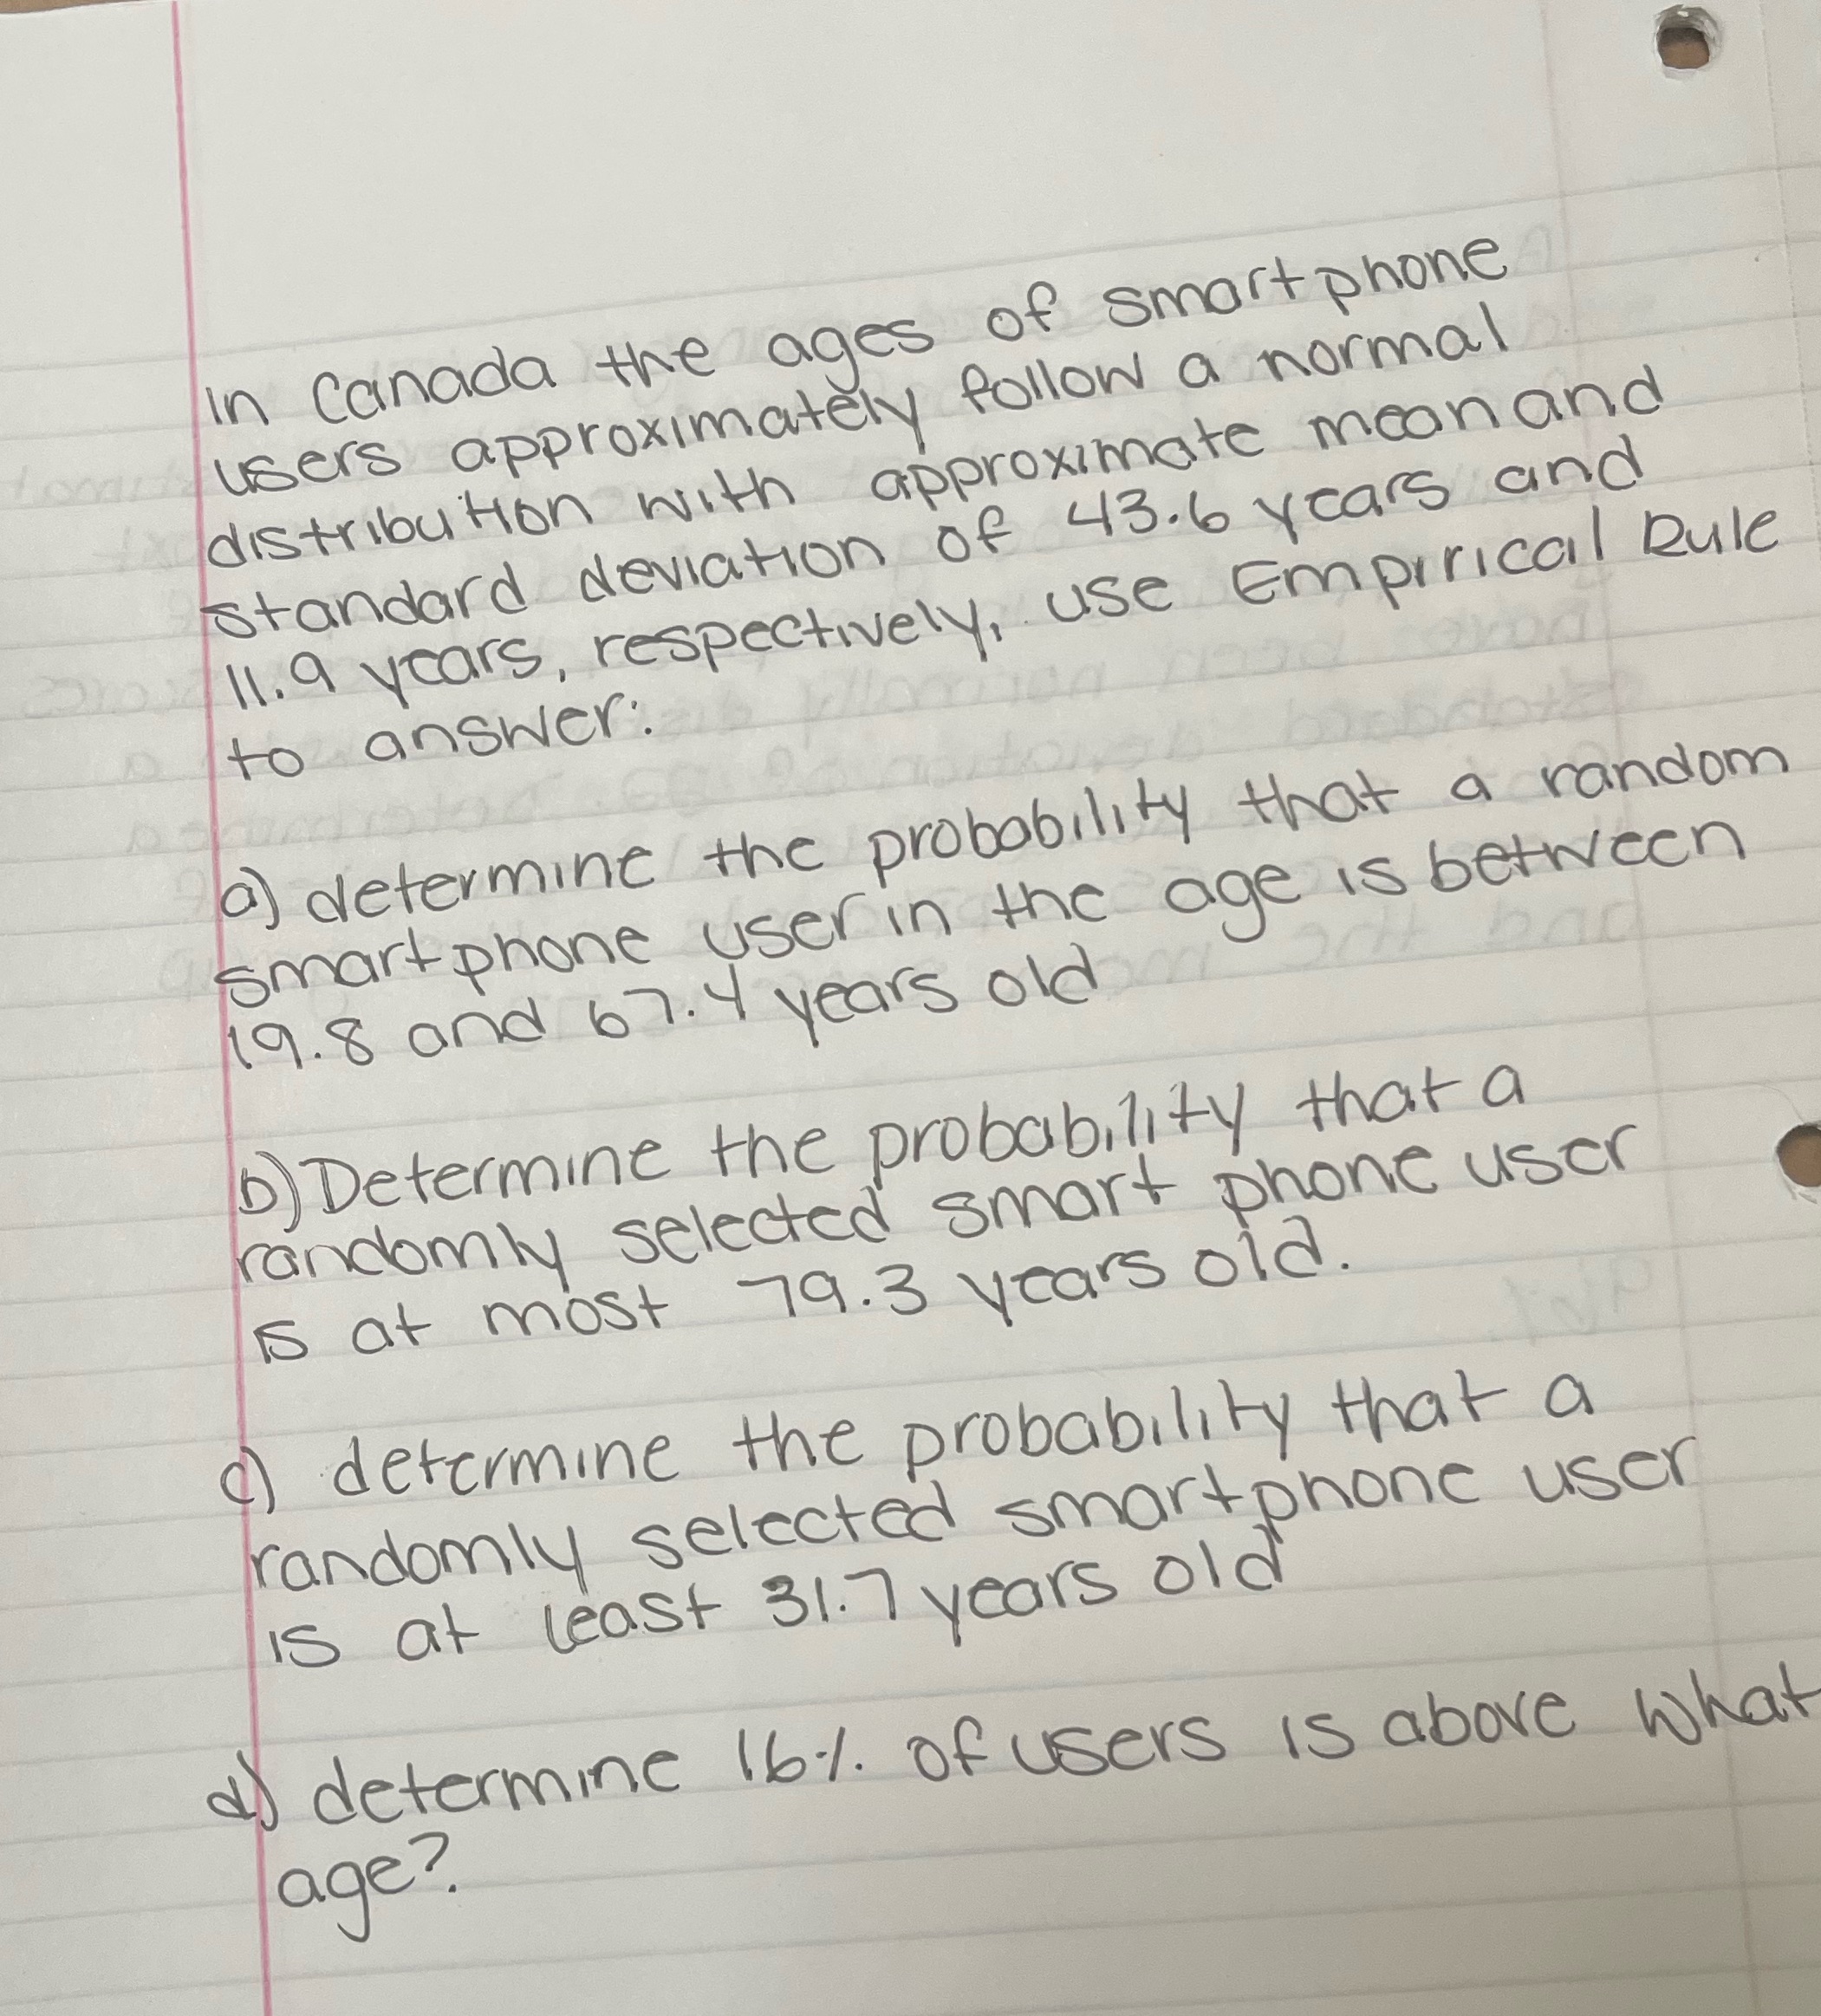 In Canada the ages of smartphone
users approximately follow a normal
distribution with approximate mean and
standard deviation of 43.6 years and
11.9 years, respectively, use Empirical Rule
to answer:
a) determine the probability that a random
smartphone user in the age is between
19.8 and 67.4 years old
b) Determine the probability that a
randomly selected smart phone user
is at most 79.3 years old.
c) determine the probability that a
randomly selected smartphone user
is at least 31.7 years old
d) determine 16% of users is above what
age?